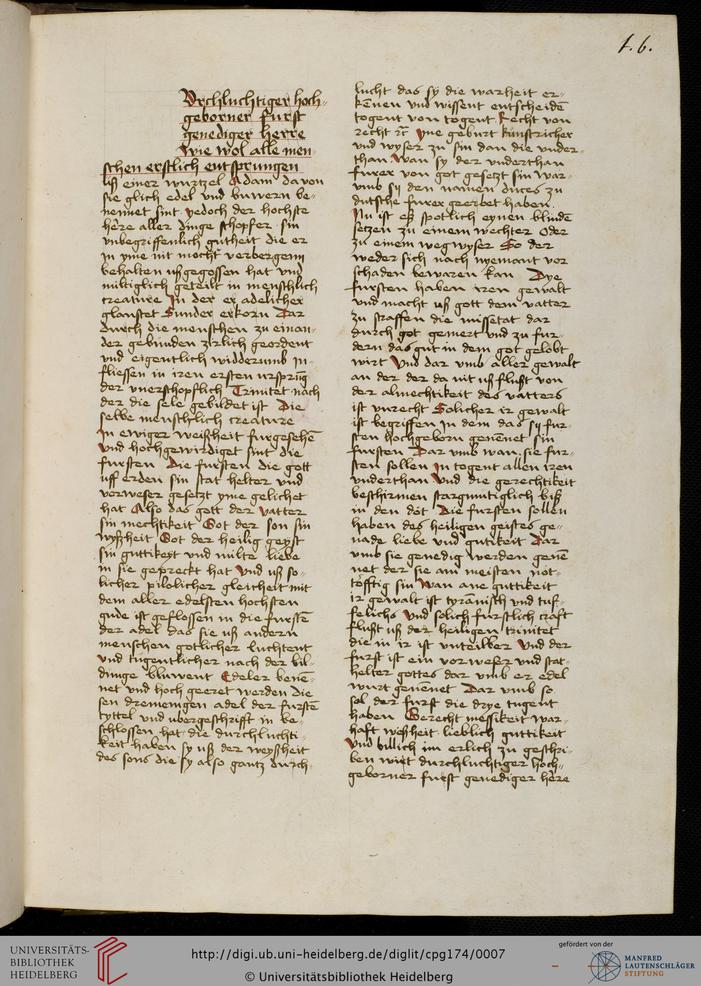 1.6.
Drchluchtiger hoch-
geborner furst
genediger herre
Wie wol alle men-
schen erstlich entsprungen
uß einer wurtzel Adam da von
sie glich edel und buwern be-
nennet sint yedoch der hochste
here aller dinge schopfer sin
unbegriffenlich gutheit die er
in yme nit mocht verbergenn
behalten ußgegossen hat und
miltiglich geteilt in menschlich
creature In der er adelicher
glanstet Sunder erkorn Dar
durch die menschen zu einan-
der gebunden zirlich geordent
und eigentlich widderumb in-
fliessen in iren ersten ursprūg
der unerschopflich Trinitet nach
der die sele gebildet ist Die
selbe menschlich creature
In ewiger weißheit furgesehē
Und hochgewirdiget sint die
fursten Die fursten die gott
uff erden sin stat helter und
vorweser gesetzt yme gelichet
hat Also das gott der vatter
sin mechtikeit Got der son sin
wyßheit Got der heilig geyst
sin guttikeyt und milte liebe
in sie gepreckt hat Und uß so-
licher pildlicher gleicheit mit
dem aller edelsten hochsten
gude ist geflossen in die furstē
der adel das sie uß andern
menschen gotlicher luchtent
Und tugentlicher nach der bil-
dunge bluwent Edeler benē-
net und hoch geeret werden Die
sen dreineingen adel der furstē
tyttel und ubergeschrifft in be-
schlossen hat die durchluchti-
keit haben sy uß der weyßheit
des sons die sy also gantz durch-
lucht das sy die warheit er-
kēnen und wissent entscheidē
togent von togent Recht von
recht rc Yne geburt kunstricher
und wyser zu sin dan die under-
than Wan sy der underthan
furer von got gesetzt sin War-
umb sy den namen duces zu
dutsche furer geerbet haben.
Nu ist eß spotlich eynen blindē
setzen zu einem wechter oder
zu einem wegwyser So der
weder sich nach nyemant vor
schaden bewaren kan Dye
fursten haben iren gewalt
Und macht uß gott dem vatter
zu straffen die missetat dar
durch got geunert und zu fur-
dern das gut in dem got gelobt
wirt Und dar umb aller gewalt
an der der da nit uß flußt von
der almechtikeit des vatters
ist unrecht Solicher ir gewalt
ist begriffen in dem das sy fur-
sten hochgeborn genēnet sin
fursten Dar umb wan sie fur-
sten sollen In togent allen iren
underthan Und die gerechtikeit
beschirmen starckmutiglich biß
in den dot Die fursten sollen
haben des heiligen geistes ge-
nade liebe und gutikeit Dar
umb sie genedig werden genē-
net der sie am meisten not-
tofftig sin Wan ane guttikeit
ir gewalt ist tyrānisch und tuf-
felichs Und solich furstlich craft
flußt uß der heiligen trinitet
die in ir ist unteilber Und der
furst ist ein vorweser und stat-
helter gottes dar umb er edel
wurt genēnet Dar umb so
sol der furst die drye tugent
haben Gerecht messikeit war-
haft weßheit lieblich guttikeit
Und billich im erlich zu geschri-
ben wirt durchluchtiger hoch-
geborner furst genediger here
UNIVERSITÄTS-
BIBLIOTHEK
HEIDELBERG
http://digi.ub.uni-heidelberg.de/diglit/cpg174/0007
© Universitätsbibliothek Heidelberg
gefördert von der
MANFRED
LAUTENSCHLÄGER
STIFTUNG